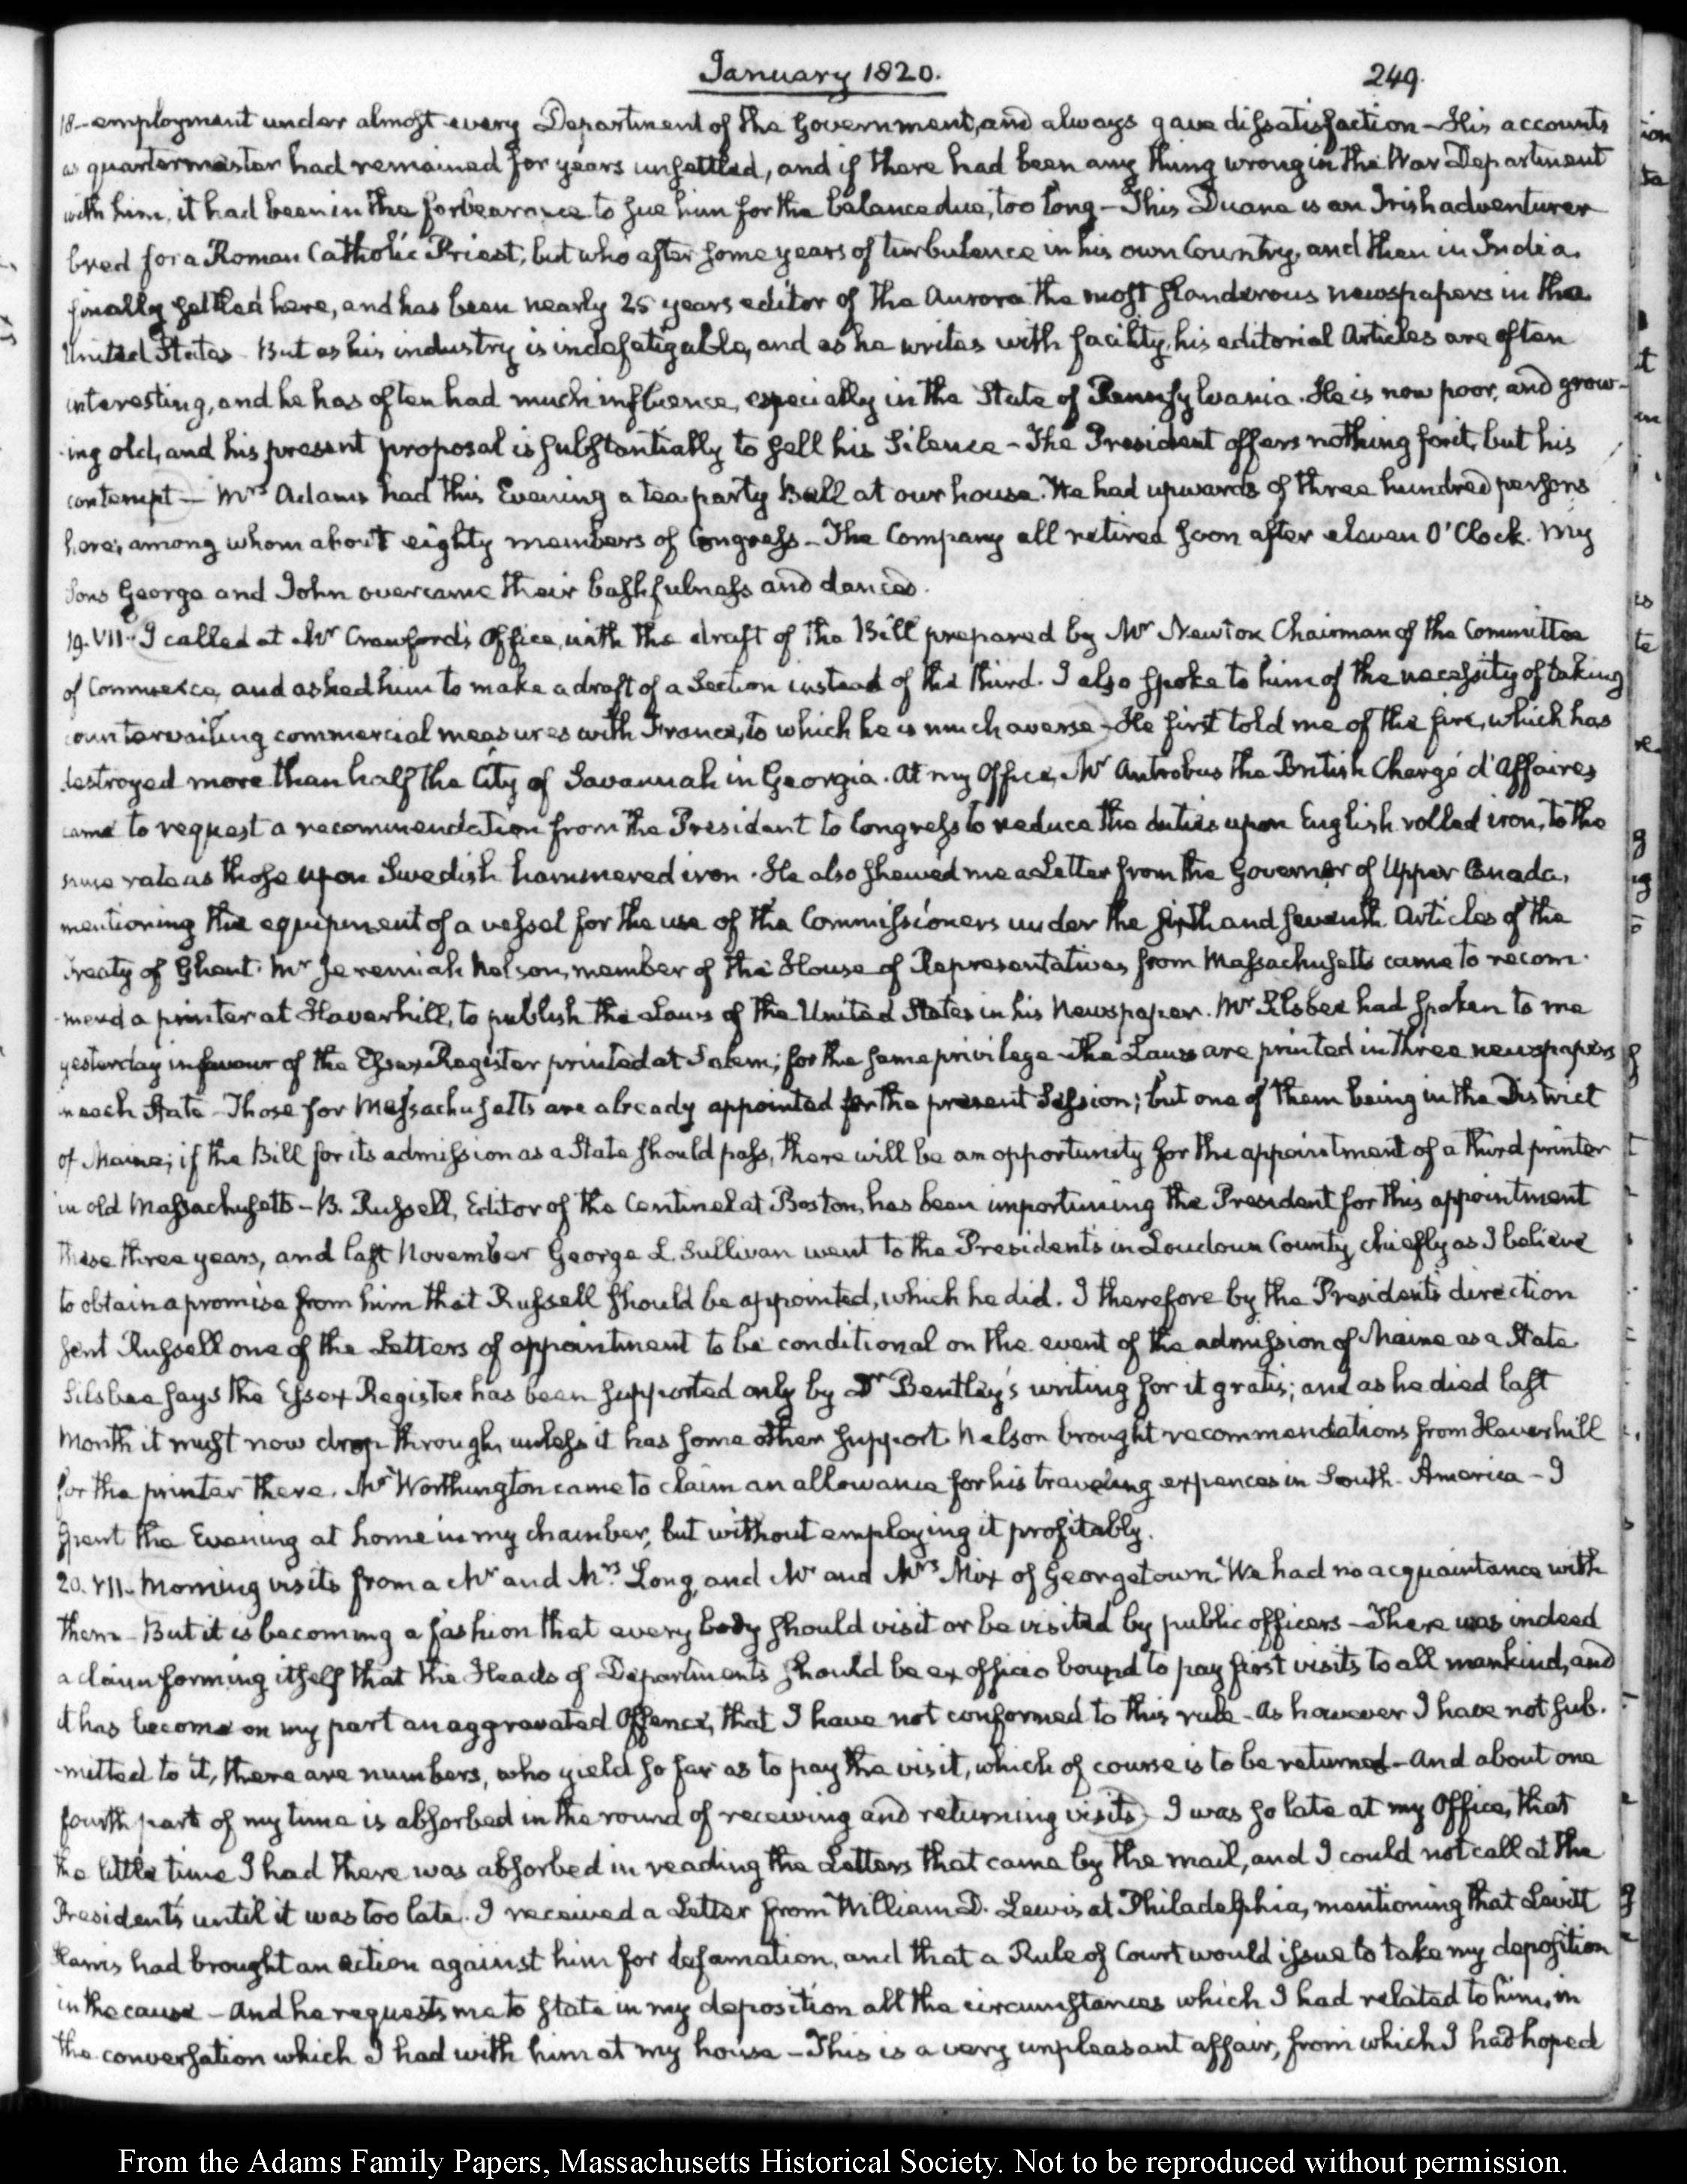 January 1820.
249.
18– employment under almost every Department of the Government, and always gave dissatisfaction – His accounts
as quartermaster had remained for years unsettled, and if there had been any thing wrong in the War Department
with him, it had been in the forbearance to sue him for the balance due, too long – This Duane is an Irish adventurer
bred for a Roman Catholic Priest, but who after some years of turbulence in his own Country, and then in India.
finally settled here, and has been nearly 25 years editor of the Aurora the most slanderous newspapers in the
United States – But as his industry is indefatigable, and as he writes with facility, his editorial Articles are often
interesting, and he has often had much influence, especially in the State of Pennsylvania. He is now poor, and grow-
-ing old, and his present proposal is substantially to sell his Silence – The President offers nothing for it, but his
contempt – Mrs Adams had this Evening a tea party Ball at our house. We had upwards of three hundred persons
here, among whom about eighty members of Congress – The Company all retired soon after eleven O'Clock. My
Sons George and John overcame their bashfulness and danced.
19. VII. I called at Mr Crawford's Office, with the draft of the Bill prepared by Mr Newton Chairman of the Committee
of Commerce, and asked him to make a draft of a Section instead of the third. I also spoke to him of the necessity of taking
countervailing commercial measures with France, to which he is much averse – He first told me of the fire, which has
destroyed more than half the City of Savannah in Georgia. At my Office, Mr Antrobus the British Chargé d'Affaires
came to request a recommendation from the President to Congress to reduce the duties upon English rolled iron, to the
same rate as those upon Swedish hammered iron. He also shewed me a Letter from the Governor of Upper Canada,
mentioning the equipment of a vessel for the use of the Commissioners under the sixth and seventh Articles of the
Treaty of Ghent. Mr Jeremiah Nelson, member of the House of Representatives from Massachusetts came to recom-
-mend a printer at Haverhill, to publish the Laws of the United States in his Newspaper. Mr Silsbee had spoken to me
yesterday in favour of the Essex Register printed at Salem; for the same privilege – The Laws are printed in three newspapers
in each State – Those for Massachusetts are already appointed for the present Session; but one of them being in the District
of Maine; if the Bill for its admission as a State should pass, there will be an opportunity for the appointment of a third printer
in old Massachusetts – B. Russell, Editor of the Centinel at Boston, has been importuning the President for this appointment
these three years, and last November George L. Sullivan went to the President's in Loudoun County, chiefly as I believe
to obtain a promise from him that Russell should be appointed, which he did. I therefore by the President's direction
sent Russell one of the Letters of appointment to be conditional on the event of the admission of Maine as a State
Silsbee says the Essex Register has been supported only by Dr Bentley's writing for it gratis; and as he died last
month it must now drop through, unless it has some other support. Nelson brought recommendations from Haverhill
for the printer there. Mr Worthington came to claim an allowance for his traveling expences in South-America – I
spent the Evening at home in my chamber, but without employing it profitably.
20. VII. Morning visits from a Mr and Mrs Long, and Mr and Mrs Mix of Georgetown. We had no acquaintance with
them – But it is becoming a fashion that every body should visit or be visited by public officers – There was indeed
a claim forming itself that the Heads of Departments should be ex officio bound to pay first visits to all mankind, and
it has become on my part an aggravated Offence, that I have not conformed to this rule – As however I have not sub-
-mitted to it, there are numbers, who yield so far as to pay the visit, which of course is to be returned – And about one
fourth part of my time is absorbed in the round of receiving and returning visits – I was so late at my Office, that
the little time I had there was absorbed in reading the Letters that came by the mail, and I could not call at the
President's until it was too late. I received a Letter from William D. Lewis at Philadelphia, mentioning that Levitt
Harris had brought an action against him for defamation, and that a Rule of Court would issue to take my deposition
in the cause – And he requests me to state in my deposition all the circumstances which I had related to him, in
the conversation which I had with him at my house – This is a very unpleasant affair, from which I had hoped
From the Adams Family Papers, Massachusetts Historical Society. Not to be reproduced without permission.